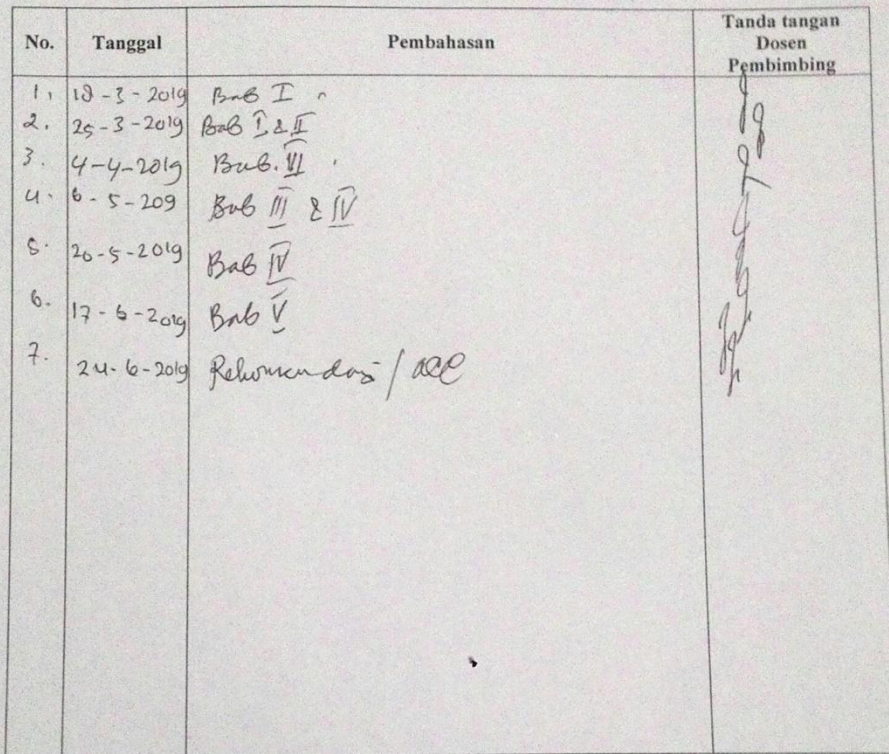 No. Tanggal Pembahasan Tanda tangan Dosen Pembimbing
1. 18-3-2019 Bab I
2. 25-3-2019 Bab I & II
3. 4-4-2019 Bab. VI
4. 6-5-209 Bab III & IV
5. 20-5-2019 Bab IV
6. 17-6-2019 Bab V
7. 24-6-2019 Rekomendasi / acc